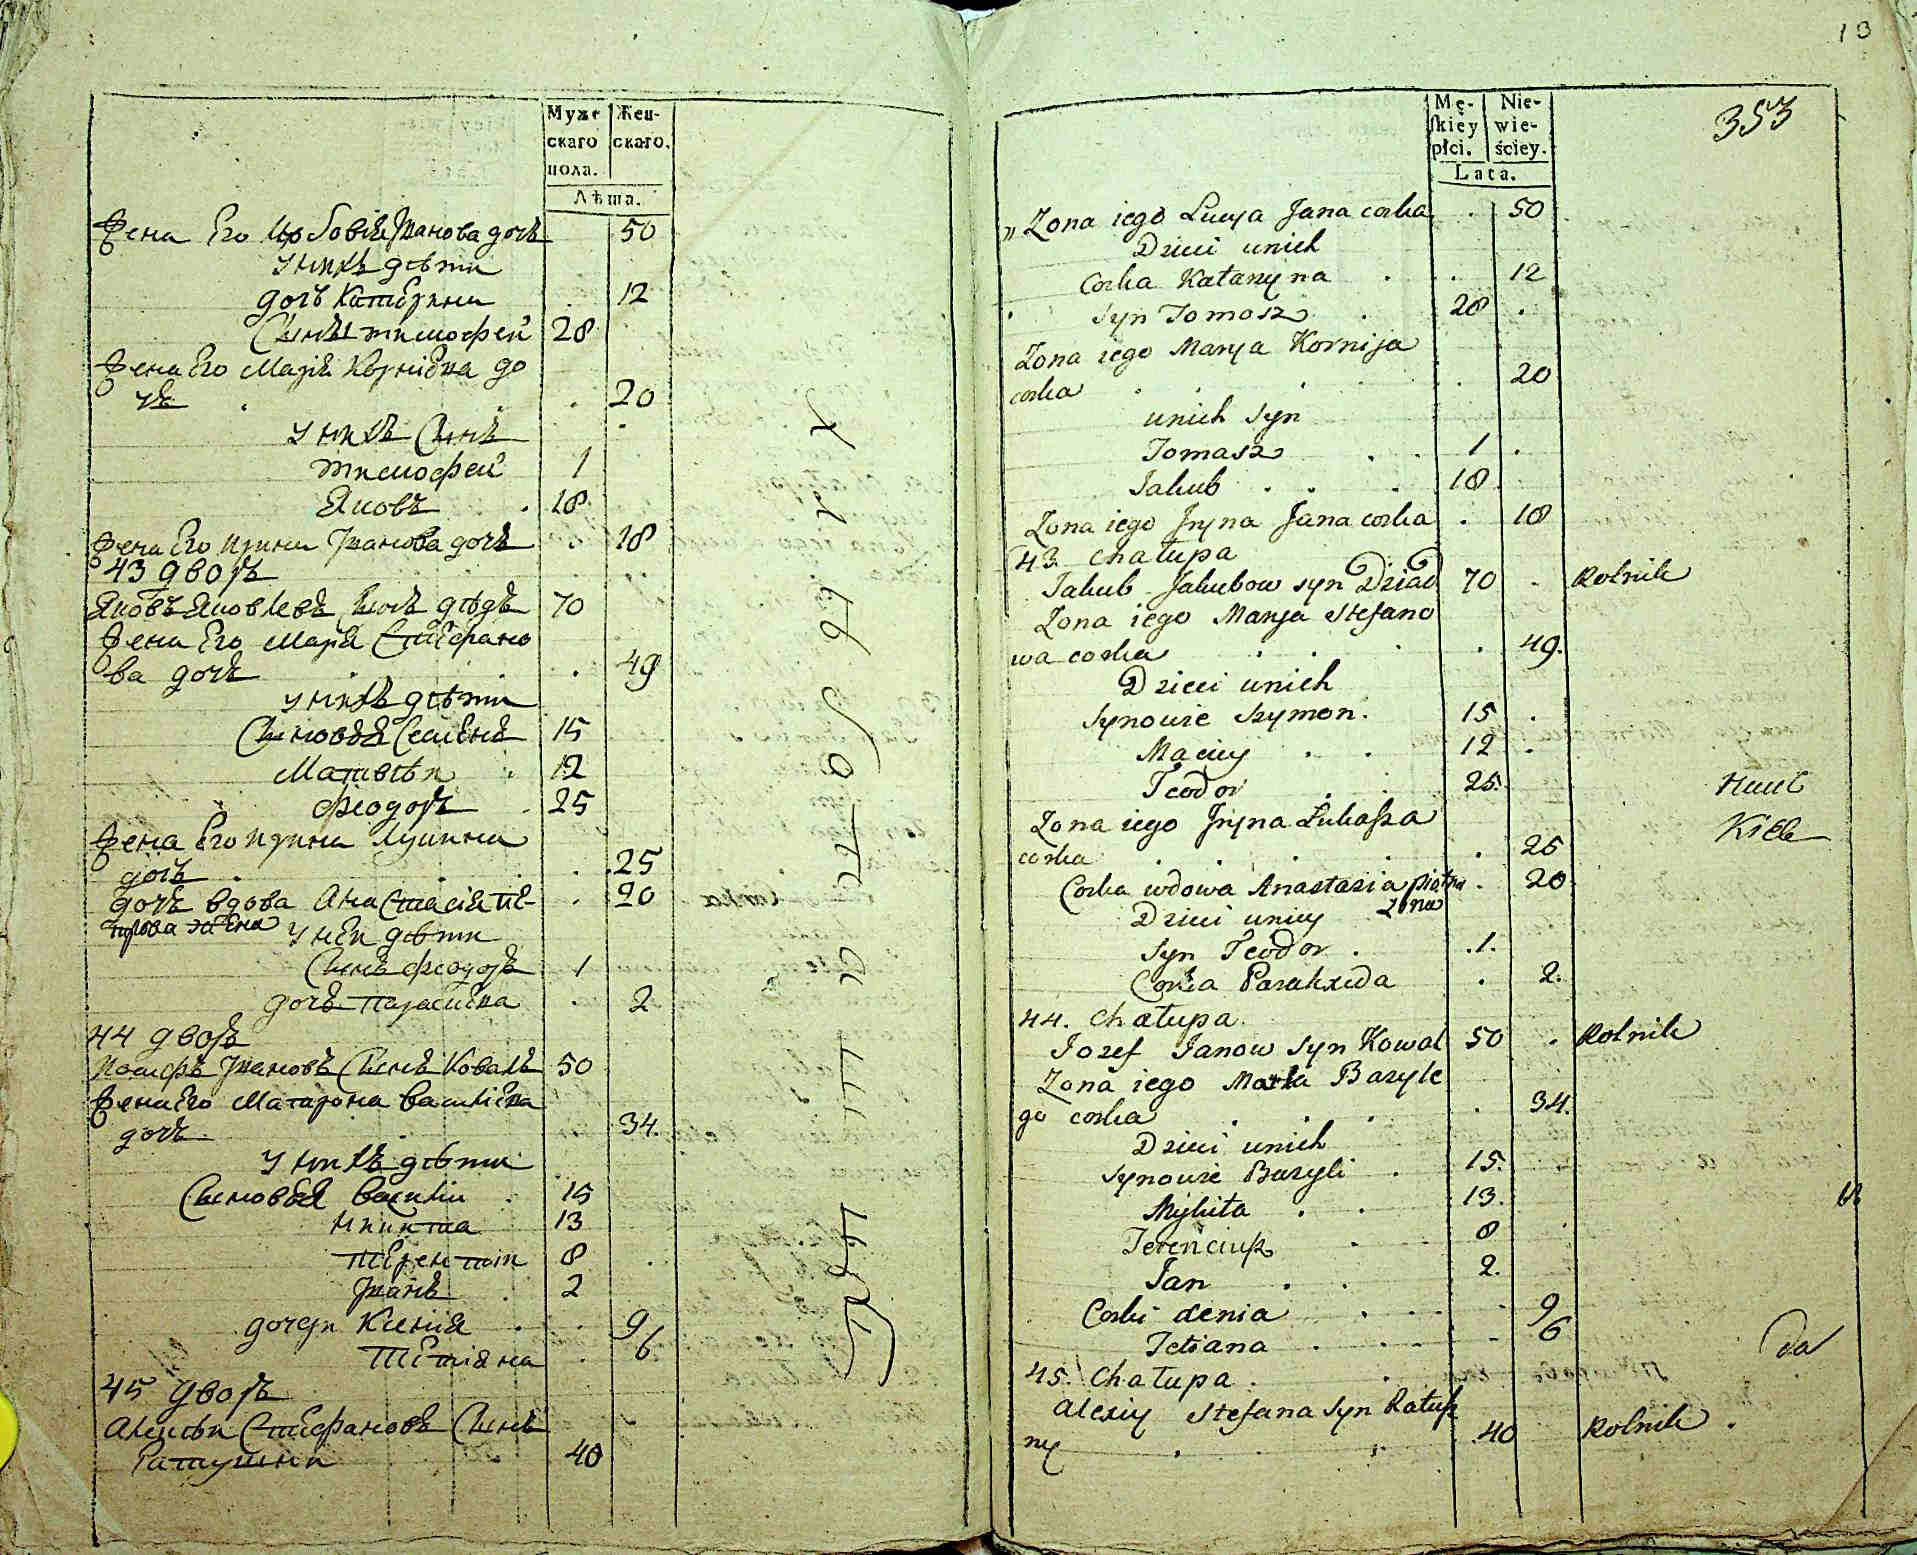 Муже
скаго
пола.
Жен-
скаго.
Лѣта.
Жена Его Любовія Іванова дочь 50
У нихъ дѣти
дочь Катерина 12
Сынъ тимофей 28
Жена Его Марія Корніева до
чь 20
У нихъ Сынъ
тимофей 1
Яковъ 18
Жена Его Ирина Іванова дочь 18
43 дворъ
Яковъ Яковлевъ Сынъ дѣдъ 70
Жена Его Марія Стефано
ва дочь 49
У нихъ дѣти
Сыновья Семенъ 15
Матвѣи 12
Феодоръ 25
Жена Его Ирина Лукина
дочь 25
дочь вдова Анастасія Пе-
трова жена 20
У неи дѣти
Сынъ феодоръ 1
дочь Параскева 2
44 дворъ
Иосифъ Івановъ Сынъ Коваль 50
Жена Его Матрона Василіева
дочь 34
У нихъ дѣти
Сыновья Василіи 15
Никита 13
терентіи 8
Іванъ 2
дочери Ксенія 9
Тетіяна 6
45 дворъ
Алексѣи Стефановъ Сынъ
Ратушни 40
13
353
Mę-
ſkiey
płci.
Nie-
wie-
ściey.
Lata.
" Zona iego Lucya Jana corka 50
Dzieci unich
Corka Katarzyna 12
Syn Tomasz 28
Zona iego Marya Kornija
corka 20
unich Syn
Tomasz 1
Jakub 18
Zona iego Jryna Jana corka 18
43. Chałupa
Jakub Jakubow syn Dziad 70 Rolnik
Zona iego Marya Stefano
wa corka 49.
Dzieci unich
Synowie Szymon. 15
Maciey 12
Teodor 25.
Zona iego Jryna Łukaſza
corka 25
Corka wdowa Anastazia piotra 20
zona
Dzieci uniey
Syn Teodor 1.
Corka Paraxeda 2.
44. Chałupa
Jozef Janow syn Kowal 50 Rolnik
Zona iego Bazyle
go corka 34.
Dzieci unich
Synowie Bazyli 15.
Mykita 13.
Terenciuſz 8
Jan 2.
Corki Xenia 9
Tetiana 6
45. Chałupa.
Alexiy Stefana syn Ratuſz
ny 40 Rolnik